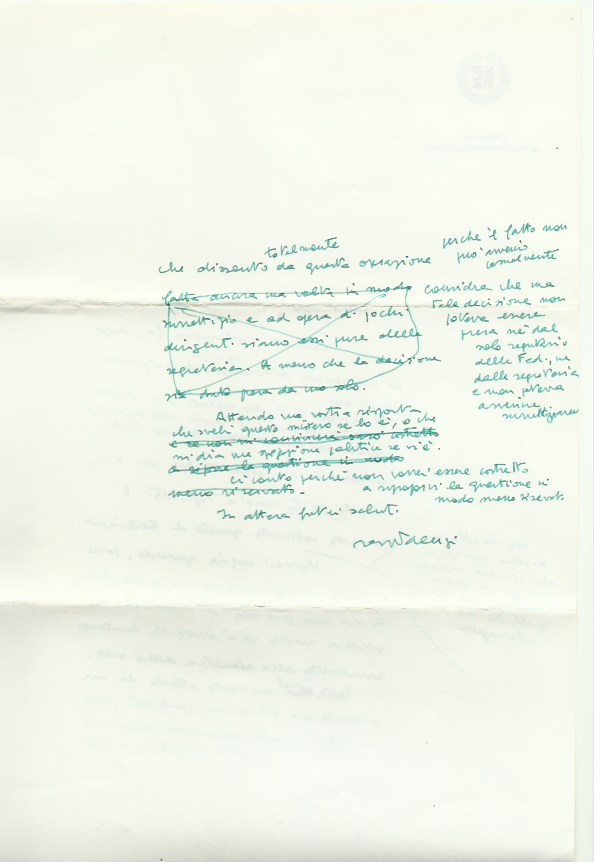 totalmente
che dissento da questa operazione
fatta ancora una volta in modo
surrettizio e ad opera di pochi
dirigenti siano essi pure della
segreteria. A meno che la decisione
sia stata presa da uno solo.
perché il fatto non
può avvenire
casualmente
considera che una
tale decisione non
poteva essere
presa né dal
solo segretario
della Fed., né
dalla segreteria
e non poteva
avvenire
Attendo una vostra risposta
che sveli questo mistero se lo è, o che
e se non mi convincerà sarò costretto
mi dia una spiegazione politica se vi è.
a riporre la questione in modo
ci conto perché non vorrei essere costretto
meno riservato.
a riproporre la questione in
modo meno riservato.
In attesa fraterni saluti.